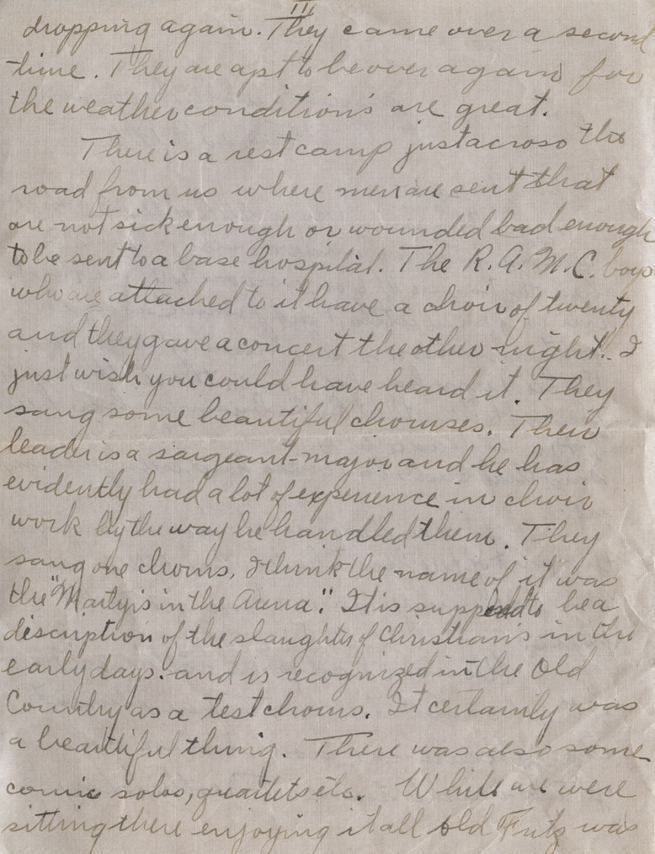 III
dropping again. They came over a second
time. They are apt to be over again for
the weather conditions are great.
There is a rest camp just across the
road from us where men are sent that
are not sick enough or wounded bad enough
to be sent to a base hospital. The R.A.M.C. boys
who are attached to it have a choir of twenty
and they gave a concert the other night. I
just wish you could have heard it. They
sang some beautiful choruses. Their
leader is a sargeant-major and he has
evidently had a lot of experience in choir
work by the way he handled them. They
sang one chorus, I think the name of it was
the "Martyis in the Arena". It is supposed to be a
description of the slaughter of Christians in the
early days. and is recognized in the Old
Country as a test chorus. It certainly was
a beautiful thing. There was also some
comic solos, quartets etc. While we were
sitting there enjoying it all old Fritz was